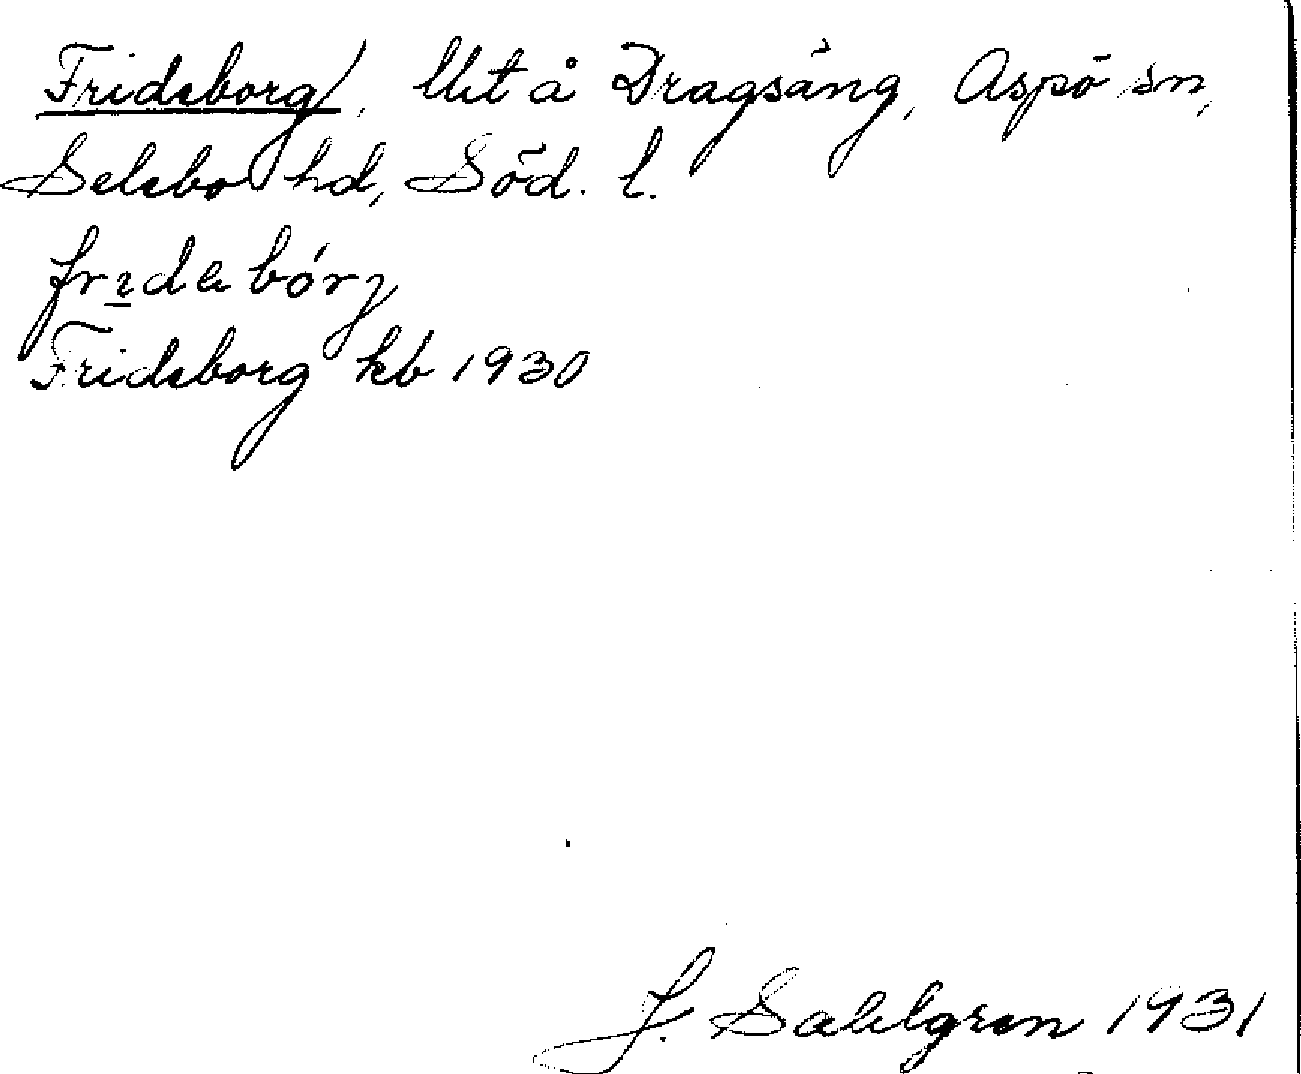 Fridsborg, llht å Dragsäng, Aspö sn,
Selebo hd, Söd. l.
Fridsborg kb 1930
J. Sahlgren 1931